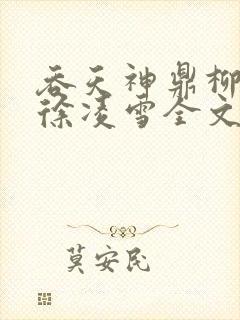 吞天神鼎柳
徐凌雪全文
莫安民